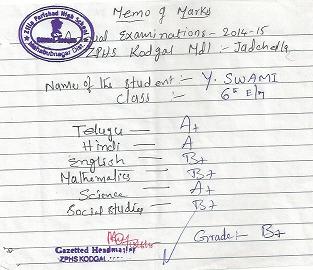 Memo of Marks
Zilla Parishad High School
Mahabubnagar Dist
Annual Examinations - 2014-15
ZPHS Kodgal Mdl :- Jadcherla
Name of the Student :- Y. SWAMI
Class :- 6th E/M
Telugu — A+
Hindi — A
English — B+
Mathematics — B+
Science — A+
Social studies — B+
Grade :- B+
Gazetted Headmaster
ZPHS KODGAL